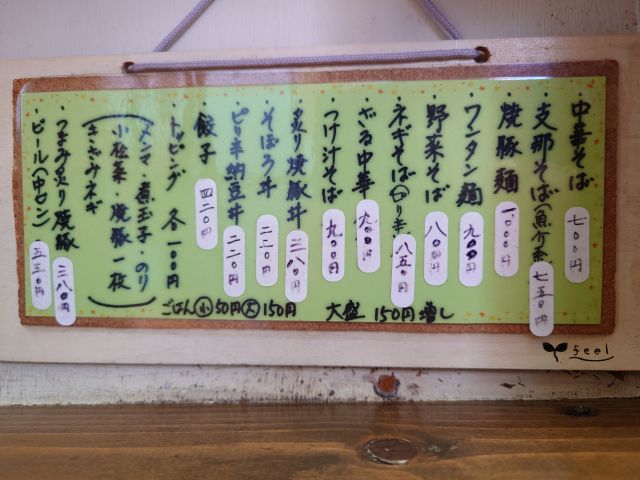 中華そば 七〇〇円
支那そば(魚介系) 七五〇円
焼豚麺 一〇〇〇円
ワンタン麺 九〇〇円
野菜そば 八〇〇円
ネギそば(ピリ辛) 八五〇円
ざる中華 九〇〇円
つけ汁そば 九〇〇円
炙り焼豚丼 三八〇円
そぼろ丼 二二〇円
ピリ辛納豆丼 二二〇円
餃子 四二〇円
・トッピング 各一〇〇円
(メンマ・煮玉子・のり
小松菜・焼豚一枚
きざみネギ)
・つまみ炙り焼豚 三八〇円
・ビール(中ビン) 五三〇円
ごはん小50円大150円
大盛 150円増し
feel